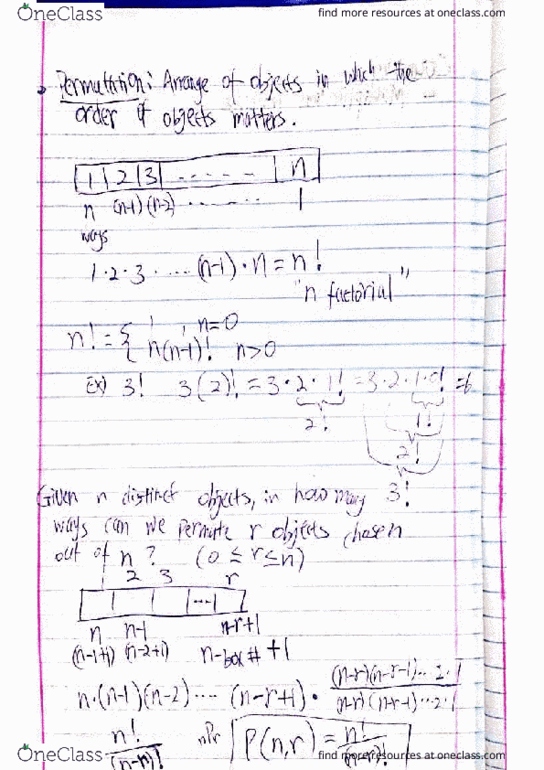 OneClass
find more resources at oneclass.com
Permutation: Arrange of objects in which the
order of objects matters.
1 | 2 | 3 | ------ | n
n (n-1) (n-2) ........ 1
ways
1·2·3· .... (n-1)·n = n!
"n factorial"
n! = { 1, n=0
n(n-1)! n>0
Ex) 3! 3(2)! = 3·2·1! = 3·2·1·0! = 6
2! 1!
2!
3!
Given n distinct objects, in how many
ways can we permute r objects chosen
out of n? (0 ≤ r ≤ n)
1 2 3 r
...
n n-1 n-r+1
(n-1+1) (n-2+1) n-box# +1
n·(n-1)(n-2) .... (n-r+1) · (n-r)(n-r-1)...2·1
(n-r)(n-r-1)...2·1
n! nPr P(n,r) = n!
(n-r)! (n-r)!
OneClass
find more resources at oneclass.com